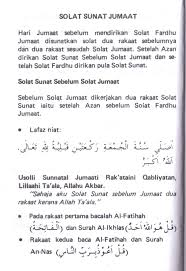 SOLAT SUNAT JUMAAT
Hari Jumaat sebelum mendirikan Solat Fardhu
Jumaat disunatkan solat dua rakaat sebelumnya
dan dua rakaat sesudah Solat Jumaat. Setelah Azan
dirikan Solat Sunat Sebelum Solat Jumaat dan se-
telah Solat Fardhu dirikan pula Solat Sunat.
Solat Sunat Sebelum Solat Jumaat
Sebelum Solat Jumaat dikerjakan dua rakaat Solat
Sunat iaitu setelah Azan sebelum Solat Fardhu
Jumaat.
• Lafaz niat:
أُصَلِّي سُنَّةَ الْجُمُعَةِ رَكْعَتَيْنِ قَبْلِيَّةً لِلَّهِ تَعَالَى
اَللَّهُ أَكْبَرُ
Usolli Sunnatal Jumaati Rak'ataini Qabliyatan,
Lillaahi Ta'ala, Allahu Akbar.
"Sahaja aku Solat Sunat sebelum Jumaat dua
rakaat kerana Allah Ta'ala."
• Pada rakaat pertama bacalah Al-Fatihah
(الْفَاتِحَةُ) dan Surah Al-Ikhlas (قُلْ هُوَ اللَّهُ أَحَدٌ)
• Rakaat kedua baca Al-Fatihah dan Surah
An-Nas (قُلْ أَعُوذُ بِرَبِّ النَّاسِ)